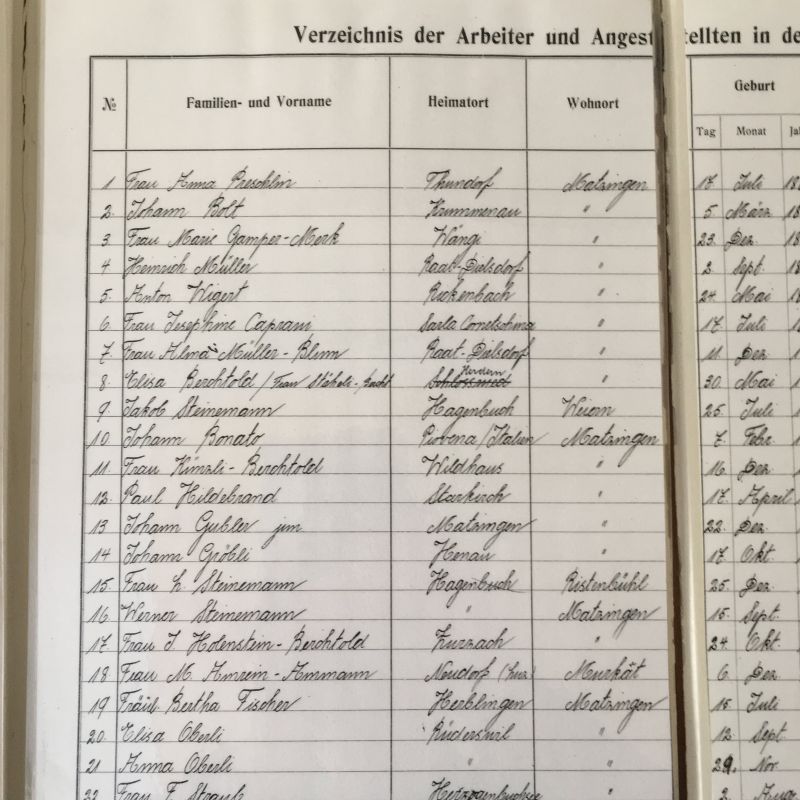 Verzeichnis der Arbeiter und Angestellten in de
№ Familien- und Vorname Heimatort Wohnort Geburt
Tag Monat
1 Frau Anna Preschlin Thundorf Matzingen 17. Juli 18
2. Johann Bolt Krummenau " 5. März 18
3. Frau Marie Gamper-Merk Wängi " 23. Dez.
4 Heinrich Müller Raat-Dielsdorf " 2. Sept.
5. Anton Wigert Rickenbach " 24. Mai
6. Frau Josephine Caprani " 17. Juli
7. Frau Alma Müller-Blum Raat-Dielsdorf " 11. Dez
8. Elisa Berchtold / Frau Stäheli- Herdern " 30. Mai
9. Jakob Steinemann Hagenbuch Weiern 25. Juli
10. Johann Bonato Piovena/Italien Matzingen 7. Febr.
11. Frau Künzli-Berchtold Wildhaus " 16. Dez
12. Paul Hildebrand Starkirch " 17. April
13 Johann Gubler jun. Matzingen " 22. Dez.
14 Johann Gröbli Henau " 17. Okt
15. Frau L. Steinemann Hagenbuch Ristenbühl 25. Dez
16. Werner Steinemann " Matzingen 15. Sept.
17. Frau J. Holenstein-Berchtold Zurzach " 24. Okt.
18 Frau M. Amrein-Ammann Neudorf (Luz.) Murkät 6. Dez
19 Fräul. Bertha Fischer Herblingen Matzingen 15. Juli
20. Elisa Oberli Rüderswil " 12. Sept.
21 Anna Oberli " " 29. Nov.
22 Frau F. Straub Herzogenbuchsee " 2.